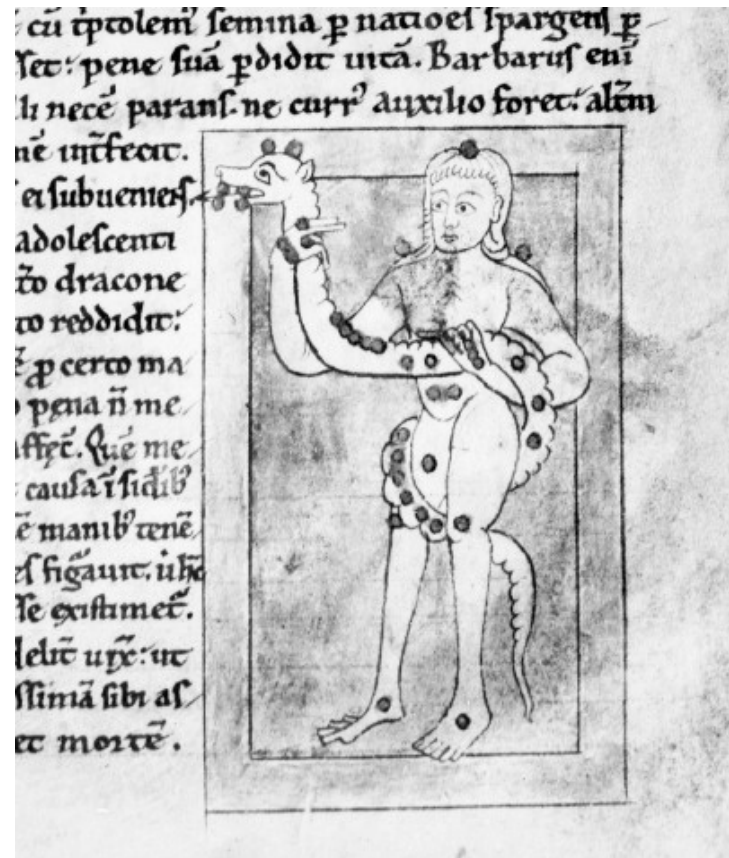 cū t̄ptolem᷒ semina ꝑ natioēs spargens ꝑ
set: pene suā ꝑdidit uitā. Barbarus eni
li necē parans. ne curr᷒ auxilio foret: alt̄m
nē int̄fecit.
ei subueniens.
adolescenti
dracone
to reddidit:
ꝓ certo ma
pena n̄ me
affęc̄t. Quē me
causa ī sidib᷒
ē manib᷒ tenē
es figᷓauit. u
se existimet̄.
delit̄ ur᷒: ut
ssimā sibi as
et mortē.